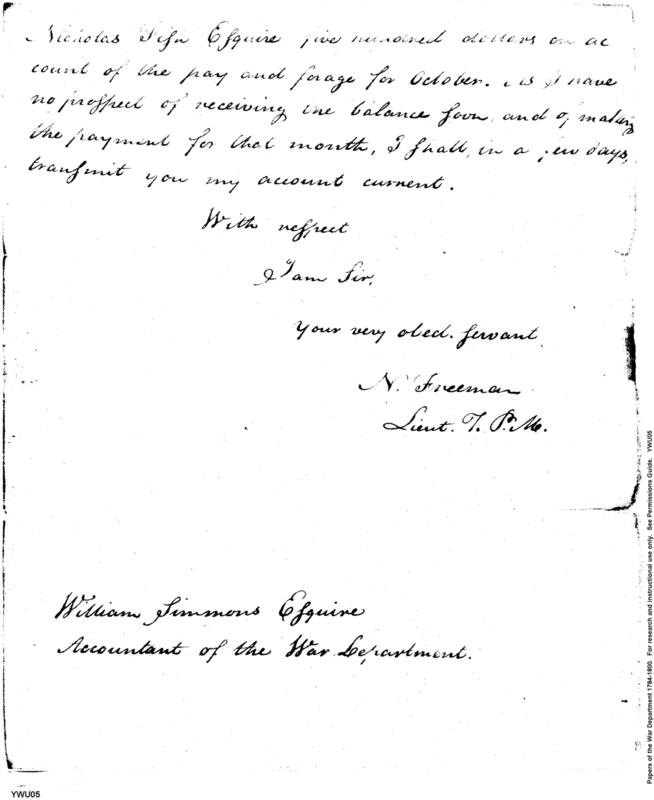 Nicholas Fish Esquire five hundred dollars on ac
count of the pay and forage for October. As I have
no prospect of receiving the balance soon, and of making
the payment for that month, I shall, in a few days,
transmit you my account current.
With respect
I am Sir,
Your very obed. servant
N. Freeman
Lieut. & P. M.
William Simmons Esquire
Accountant of the War Department.
Papers of the War Department 1784-1800. For research and instructional use only. See Permissions Guide. YWU05
YWU05